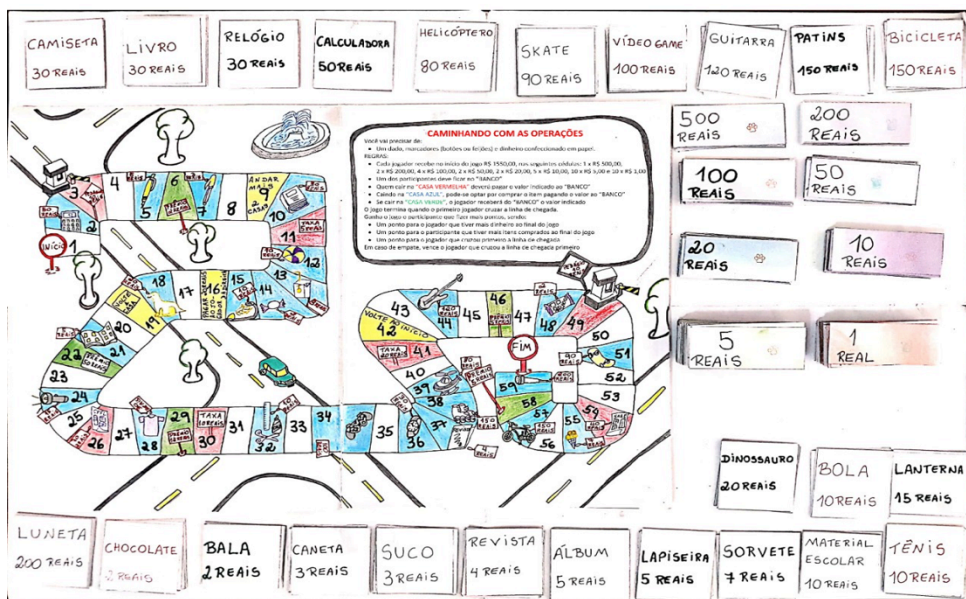 CAMISETA
30 REAIS
LIVRO
30 REAIS
RELÓGIO
30 REAIS
CALCULADORA
50 REAIS
HELICÓPTERO
80 REAIS
SKATE
90 REAIS
VÍDEO GAME
100 REAIS
GUITARRA
120 REAIS
PATINS
150 REAIS
BICICLETA
150 REAIS
CAMINHANDO COM AS OPERAÇÕES
Você vai precisar de:
• Um dado, marcadores (botões ou feijões) e dinheiro confeccionado em papel.
REGRAS:
• Cada jogador recebe no início do jogo R$ 1550,00, nas seguintes cédulas: 1 x R$ 500,00,
2 x R$ 200,00, 4 x R$ 100,00, 2 x R$ 50,00, 2 x R$ 20,00, 5 x R$ 10,00, 10 x R$ 5,00 e 10 x R$ 1,00
• Um dos participantes deve ficar no "BANCO"
• Quem cair na "CASA VERMELHA" deverá pagar o valor indicado ao "BANCO"
• Caindo na "CASA AZUL", pode-se optar por comprar o item pagando o valor ao "BANCO"
• Se cair na "CASA VERDE", o jogador receberá do "BANCO" o valor indicado
O jogo termina quando o primeiro jogador cruzar a linha de chegada.
Ganha o jogo o participante que fizer mais pontos, sendo:
• Um ponto para o jogador que tiver mais dinheiro ao final do jogo
• Um ponto para o participante que tiver mais itens comprados ao final do jogo
• Um ponto para o jogador que cruzou primeiro a linha de chegada
Em caso de empate, vence o jogador que cruzou a linha de chegada primeiro
500
REAIS
200
REAIS
100
REAIS
50
REAIS
20
REAIS
10
REAIS
5
REAIS
1
REAL
INÍCIO
1
2
3
4
5
6
7
8
9
ANDAR
MAIS
2
CASAS
10
11
TAXA
5 REAIS
12
13
14
15
16
17
18
19
20
21
22
23
24
25
26
27
28
29
30
TAXA
31
32
33
34
35
36
37
38
39
40
41
TAXA
42
VOLTE AO INÍCIO
43
44
45
46
47
48
49
50
51
52
53
54
55
56
57
58
59
FIM
DINOSSAURO
20 REAIS
BOLA
10 REAIS
LANTERNA
15 REAIS
LUNETA
200 REAIS
CHOCOLATE
2 REAIS
BALA
2 REAIS
CANETA
3 REAIS
SUCO
3 REAIS
REVISTA
4 REAIS
ÁLBUM
5 REAIS
LAPISEIRA
5 REAIS
SORVETE
7 REAIS
MATERIAL
ESCOLAR
10 REAIS
TÊNIS
10 REAIS